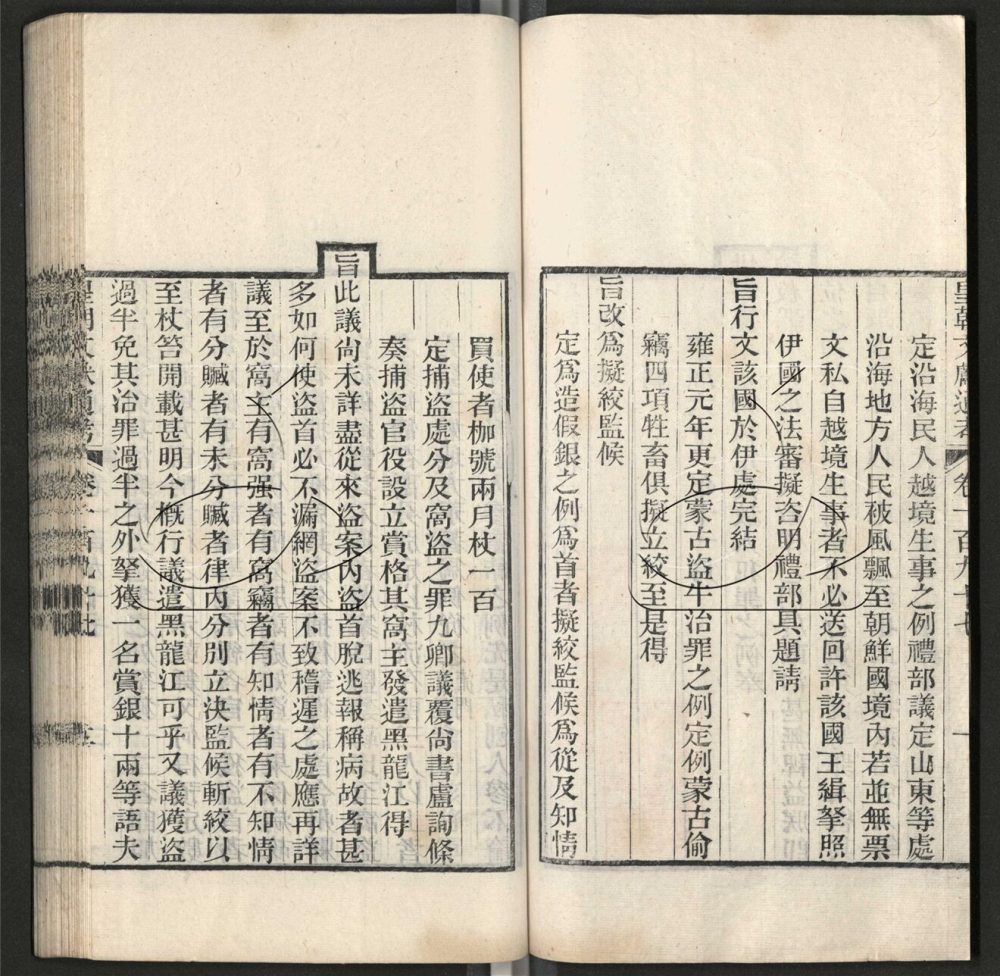 皇朝文獻通考 卷一百九十七 一
定沿海民人越境生事之例禮部議定山東等處
沿海地方人民被風飄至朝鮮國境內若並無票
文私自越境生事者不必送回許該國王緝拏照
伊國之法審擬咨明禮部具題請
旨行文該國於伊處完結
雍正元年更定蒙古盜牛治罪之例定例蒙古偷
竊四項牲畜俱擬立絞至是得
旨改爲擬絞監候
定爲造假銀之例爲首者擬絞監候爲從及知情
買使者枷號兩月杖一百
定捕盜處分及窩盜之罪九卿議覆尙書盧詢條
奏捕盜官役設立賞格其窩主發遣黑龍江得
旨此議尙未詳盡從來盜案內盜首脫逃報稱病故者甚
多如何使盜首必不漏網盜案不致稽遲之處應再詳
議至於窩主有窩强者有窩竊者有知情者有不知情
者有分贓者有未分贓者律內分別立決監候斬絞以
至杖笞開載甚明今槪行議遣黑龍江可乎又議獲盜
過半免其治罪過半之外拏獲一名賞銀十兩等語夫
皇朝文獻通考 卷一百九十七